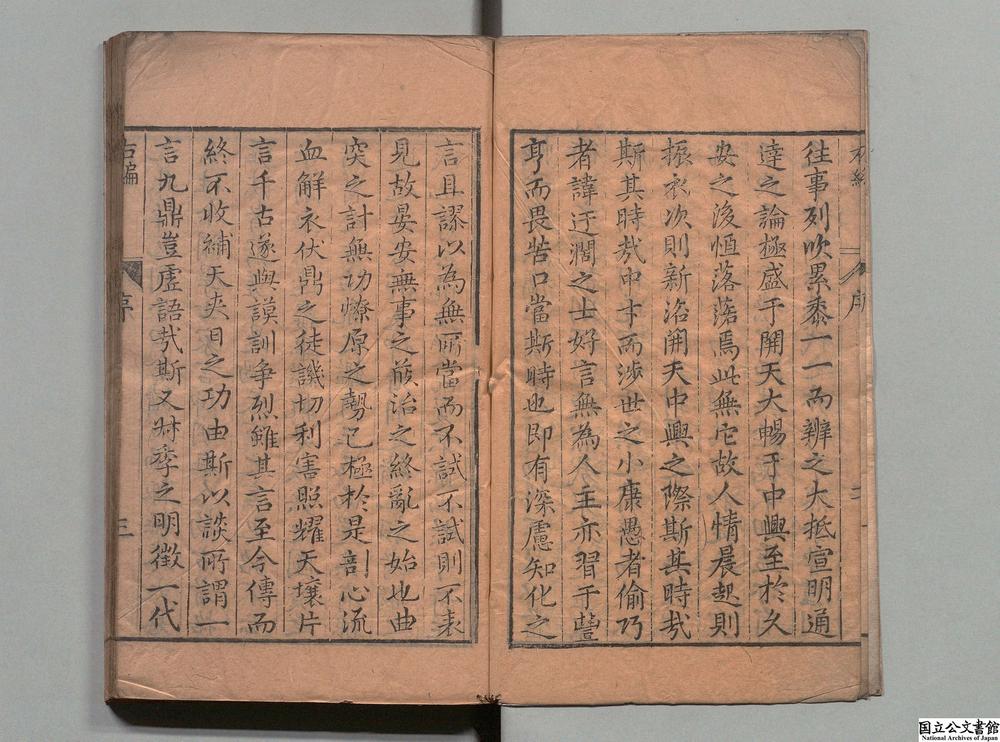 往事列吹累黍一一而辨之大抵宣明通
達之論極盛于開天大暢于中興至於久
安之後恒落落焉此無它故人情晨起則
振衣次則新浴開天中興之際斯其時㢤
斯其時㢤中才而涉世之小康愚者偷巧
者諱迂濶之士好言無為人主亦習于豐
亨而畏苦口當斯時也即有深慮知化之
言且謬以為無所當而不試不試則不表
見故晏安無事之族治之終亂之始也曲
突之計無功燎原之勢已極於是剖心流
血解衣伏鼎之徒譏切利害照耀天壤片
言千古遂與謨訓争烈雖其言至今傳而
終不收補天夾日之功由斯以談所謂一
言九鼎豈虛語㢤斯又叔季之明徵一代
右編
序
三
国立公文書館
National Archives of Japan